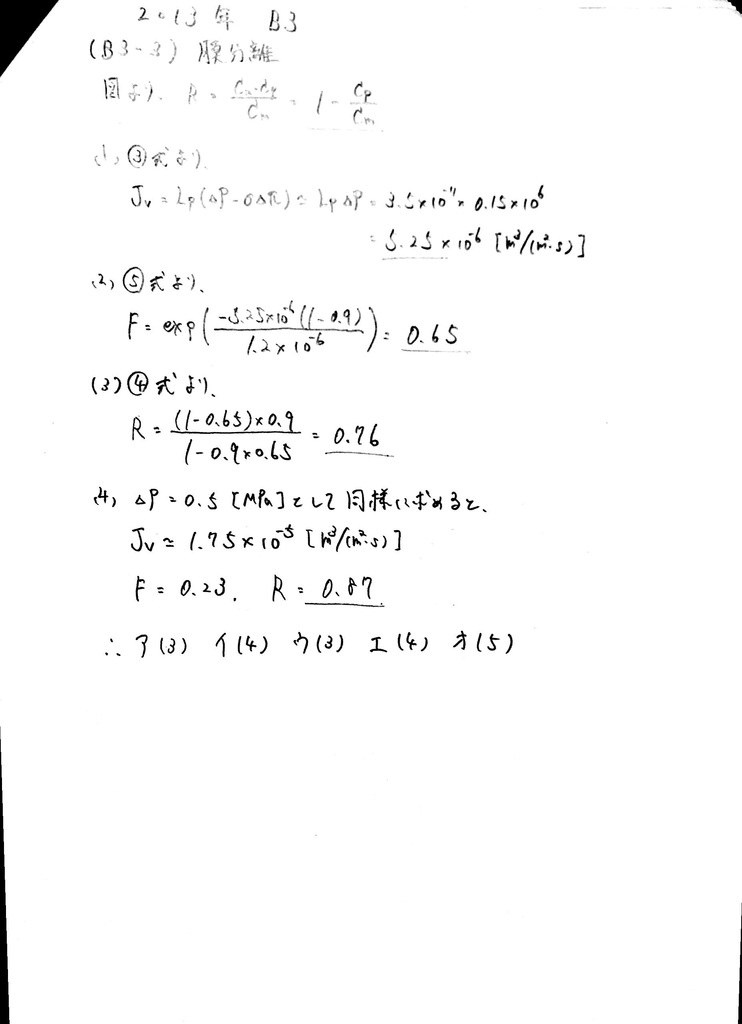 2013年 B3
(B3-3) 膜分離
図より、 R = (Cm-Cp)/Cm = 1 - Cp/Cm
(1) ③式より、
Jv = Lp(ΔP-σΔπ) ≃ LpΔP = 3.5×10⁻¹¹ × 0.15×10⁶
= 5.25 × 10⁻⁶ [m³/(m²·s)]
(2) ⑤式より、
F = exp( -5.25×10⁻⁶(1-0.9) / 1.2×10⁻⁶ ) = 0.65
(3) ④式より、
R = (1-0.65)×0.9 / 1-0.9×0.65 = 0.76
(4) ΔP = 0.5 [MPa]として同様に求めると、
Jv ≃ 1.75×10⁻⁵ [m³/(m²·s)]
F = 0.23. R = 0.87
∴ ア(3) イ(4) ウ(3) エ(4) オ(5)